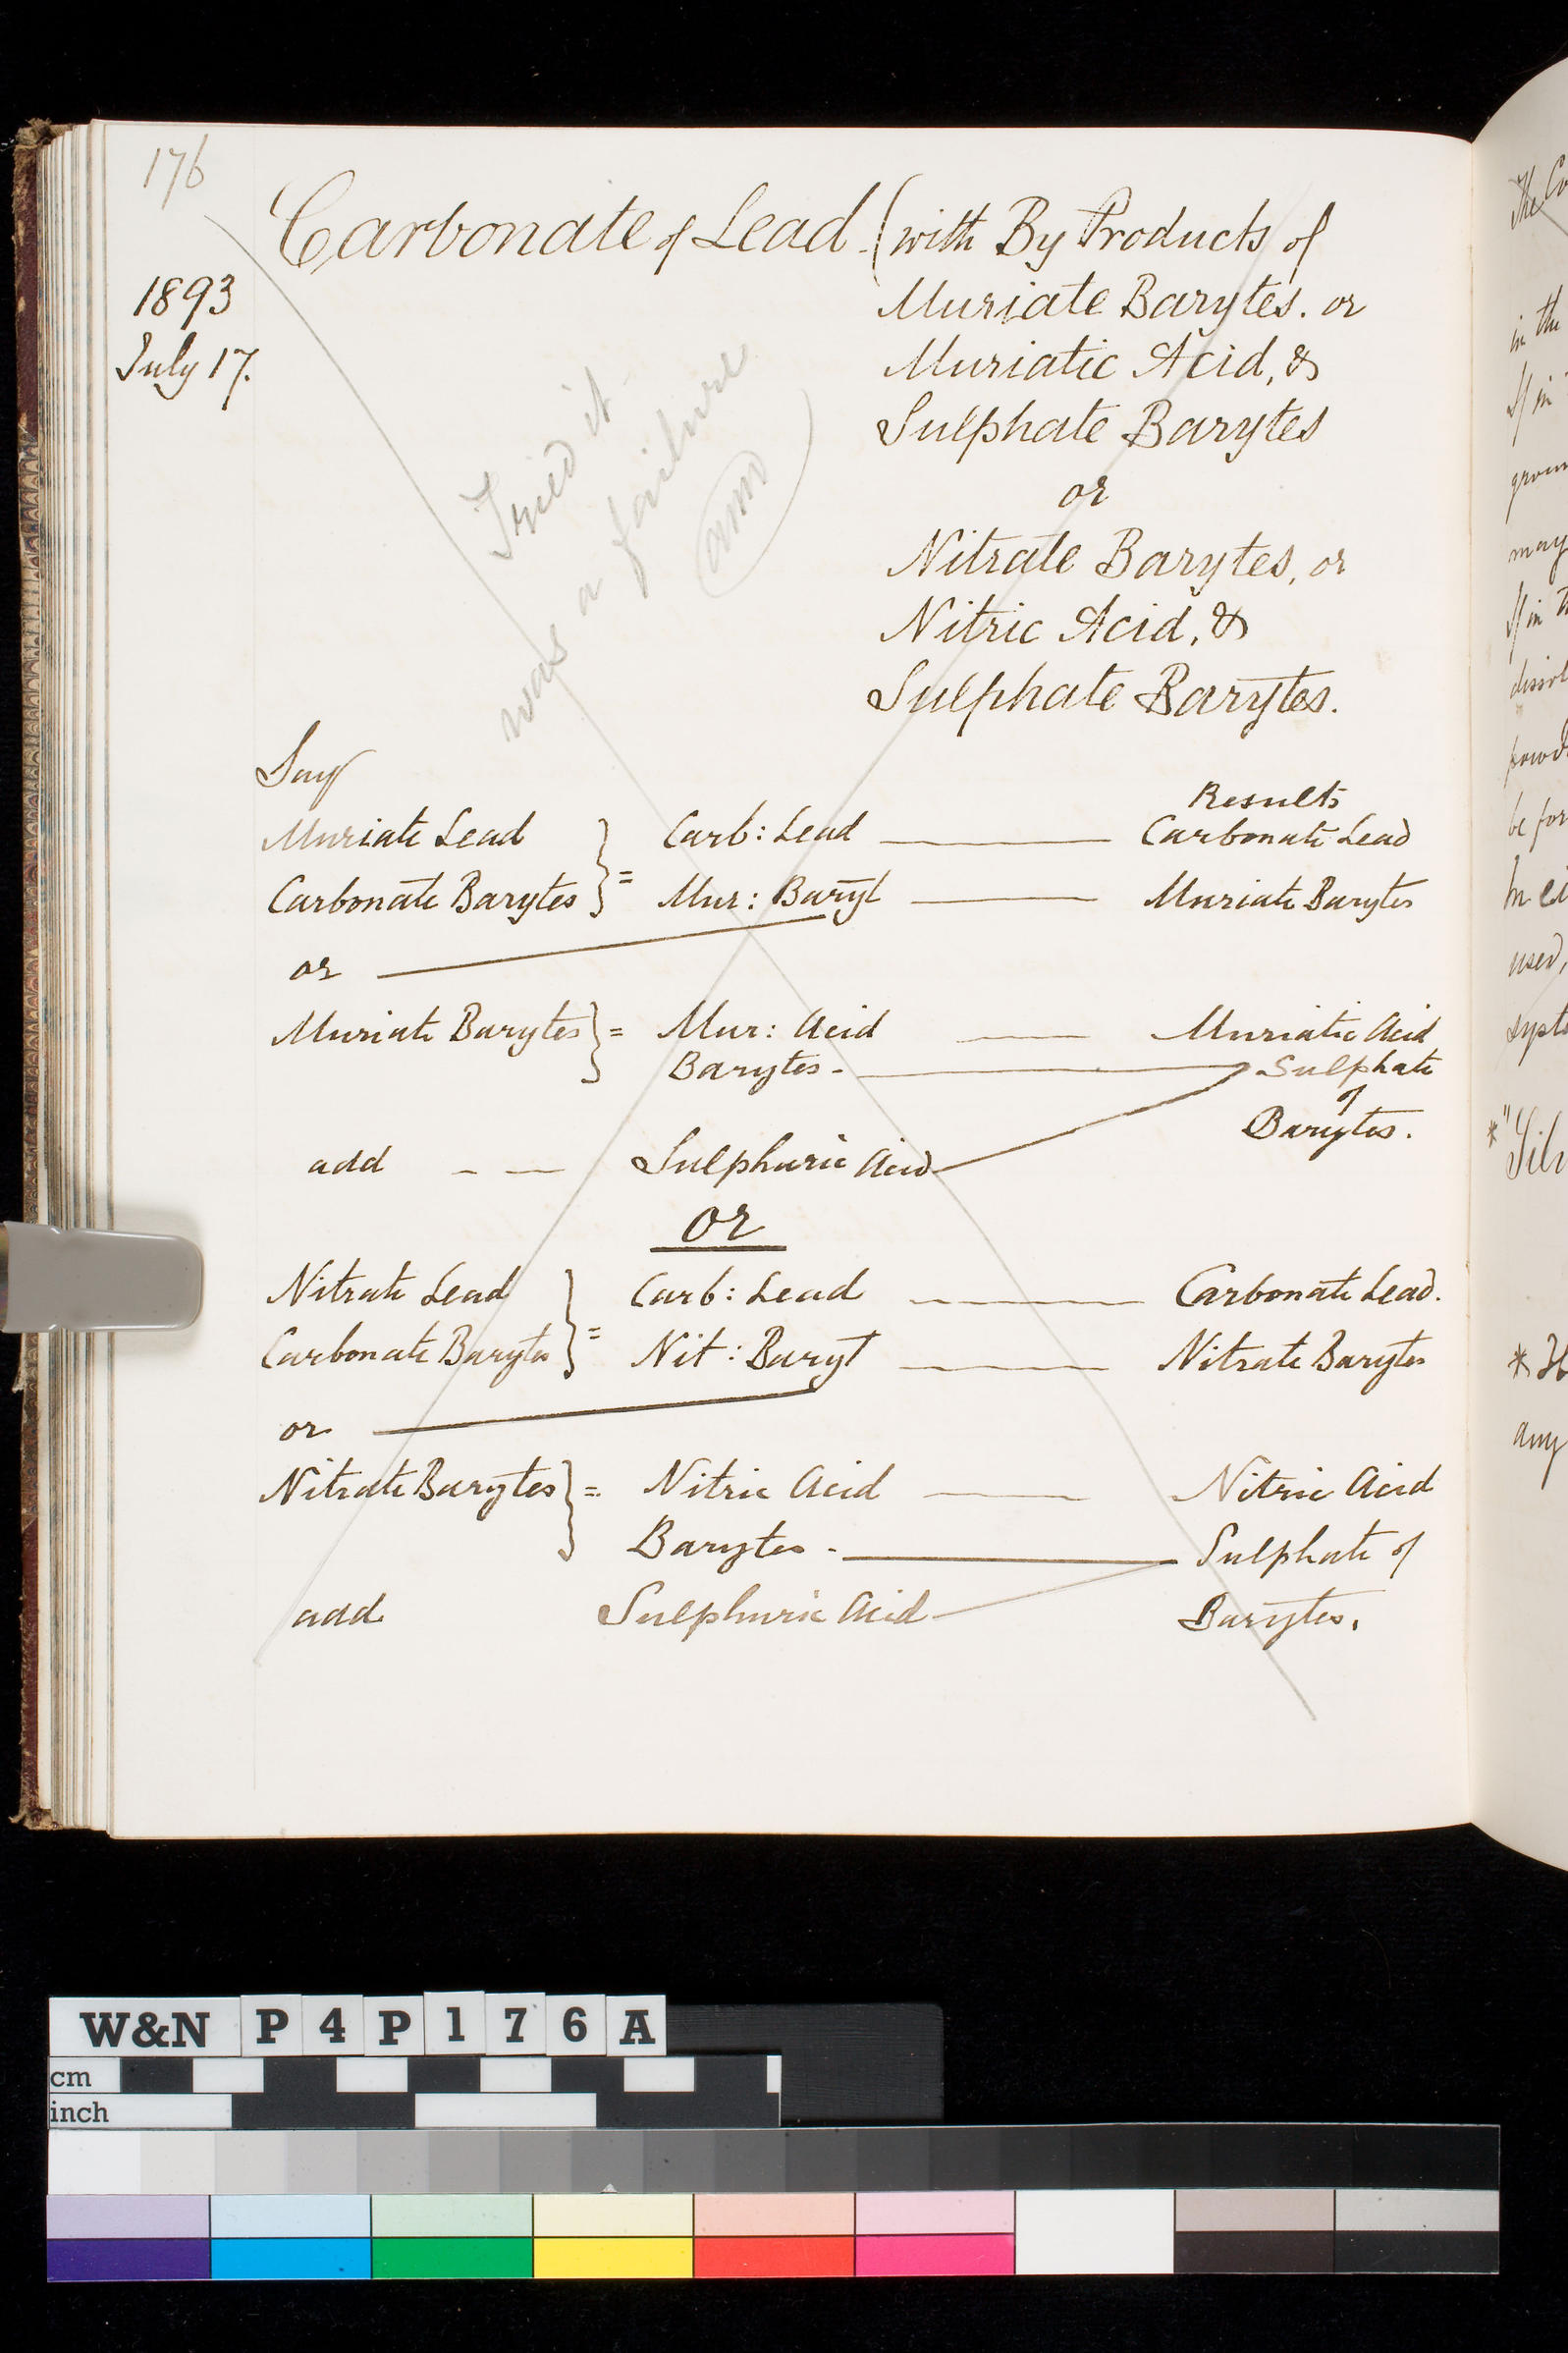 176
Carbonate of Lead (with By Products of
1893
Muriate Barytes. or
July 17.
Muriatic Acid, &
Sulphate Barytes
or
Nitrate Barytes, or
Nitric Acid, &
Sulphate Barytes.
Tried it
was a failure
Say
Results
Muriate Lead } = Carb: Lead — Carbonate Lead
Carbonate Barytes } Mur: Baryt — Muriate Barytes
or
Muriate Barytes } = Mur: Acid — Muriatic Acid
Barytes - — Sulphate
of
Barytes.
add - — Sulphuric Acid
or
Nitrate Lead } = Carb: Lead — Carbonate Lead.
Carbonate Barytes } Nit: Baryt — Nitrate Barytes
or
Nitrate Barytes } = Nitric Acid — Nitric Acid
Barytes - — Sulphate of
add Sulphuric Acid — Barytes.
The
in the
in
may
be for
used,
* "Silv
*
any
W&N P4P176A
cm
inch